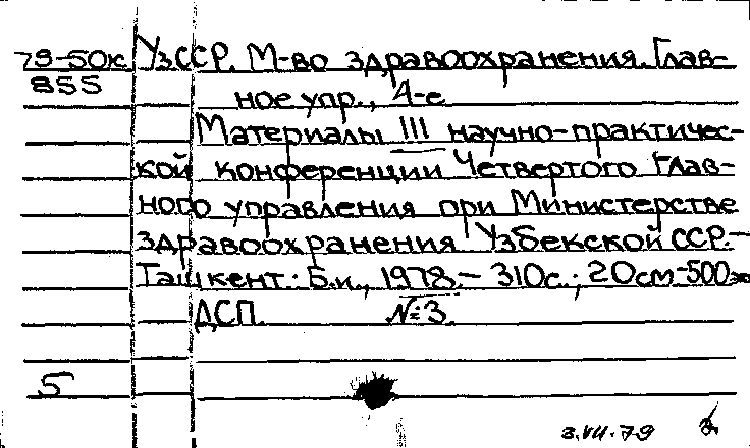 79-50к УзССР. М-во здравоохранения. Глав-
855 ное упр., 4-е
Материалы III научно-практичес-
кой конференции Четвертого Глав-
ного управления при Министерстве
здравоохранения Узбекской ССР.-
Ташкент: Б.и., 1978.- 310с.; 20см-500э
ДСП. №3.
5
3.VII.79